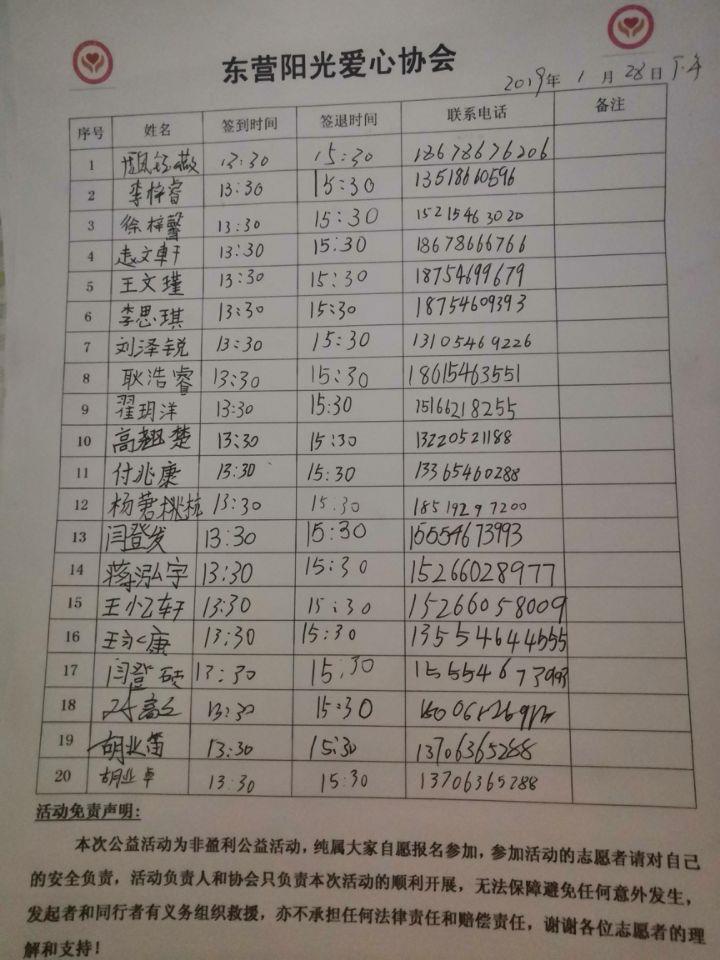 东营阳光爱心协会
2019年 1月 28日 下午
序号 姓名 签到时间 签退时间 联系电话 备注
1 13:30 15:30 18678676206
2 李梓睿 13:30 15:30 13518660596
3 徐梓馨 13:30 15:30 15215463020
4 文轩 13:30 15:30 18678666766
5 王文瑾 13:30 15:30 18754699679
6 李思琪 13:30 15:30 18754609393
7 刘泽锐 13:30 15:30 13105469226
8 耿浩睿 13:30 15:30 18615463551
9 翟玥洋 13:30 15:30 15166218255
10 高翘楚 13:30 15:30 13220521188
11 付兆康 13:30 15:30 13365460288
12 杨 桃 13:30 15:30 18519297200
13 闫登发 13:30 15:30 15554673993
14 蒋泓宇 13:30 15:30 15266028977
15 王忆轩 13:30 15:30 15266058009
16 王 康 13:30 15:30
17 闫登硕 13:30 15:30 15554673993
18 13:30 15:30
19 胡业笛 13:30 15:30 13706365288
20 胡业卓 13:30 15:30 13706365288
活动免责声明:
本次公益活动为非盈利公益活动，纯属大家自愿报名参加，参加活动的志愿者请对自己
的安全负责，活动负责人和协会只负责本次活动的顺利开展，无法保障避免任何意外发生，
发起者和同行者有义务组织救援，亦不承担任何法律责任和赔偿责任，谢谢各位志愿者的理
解和支持！